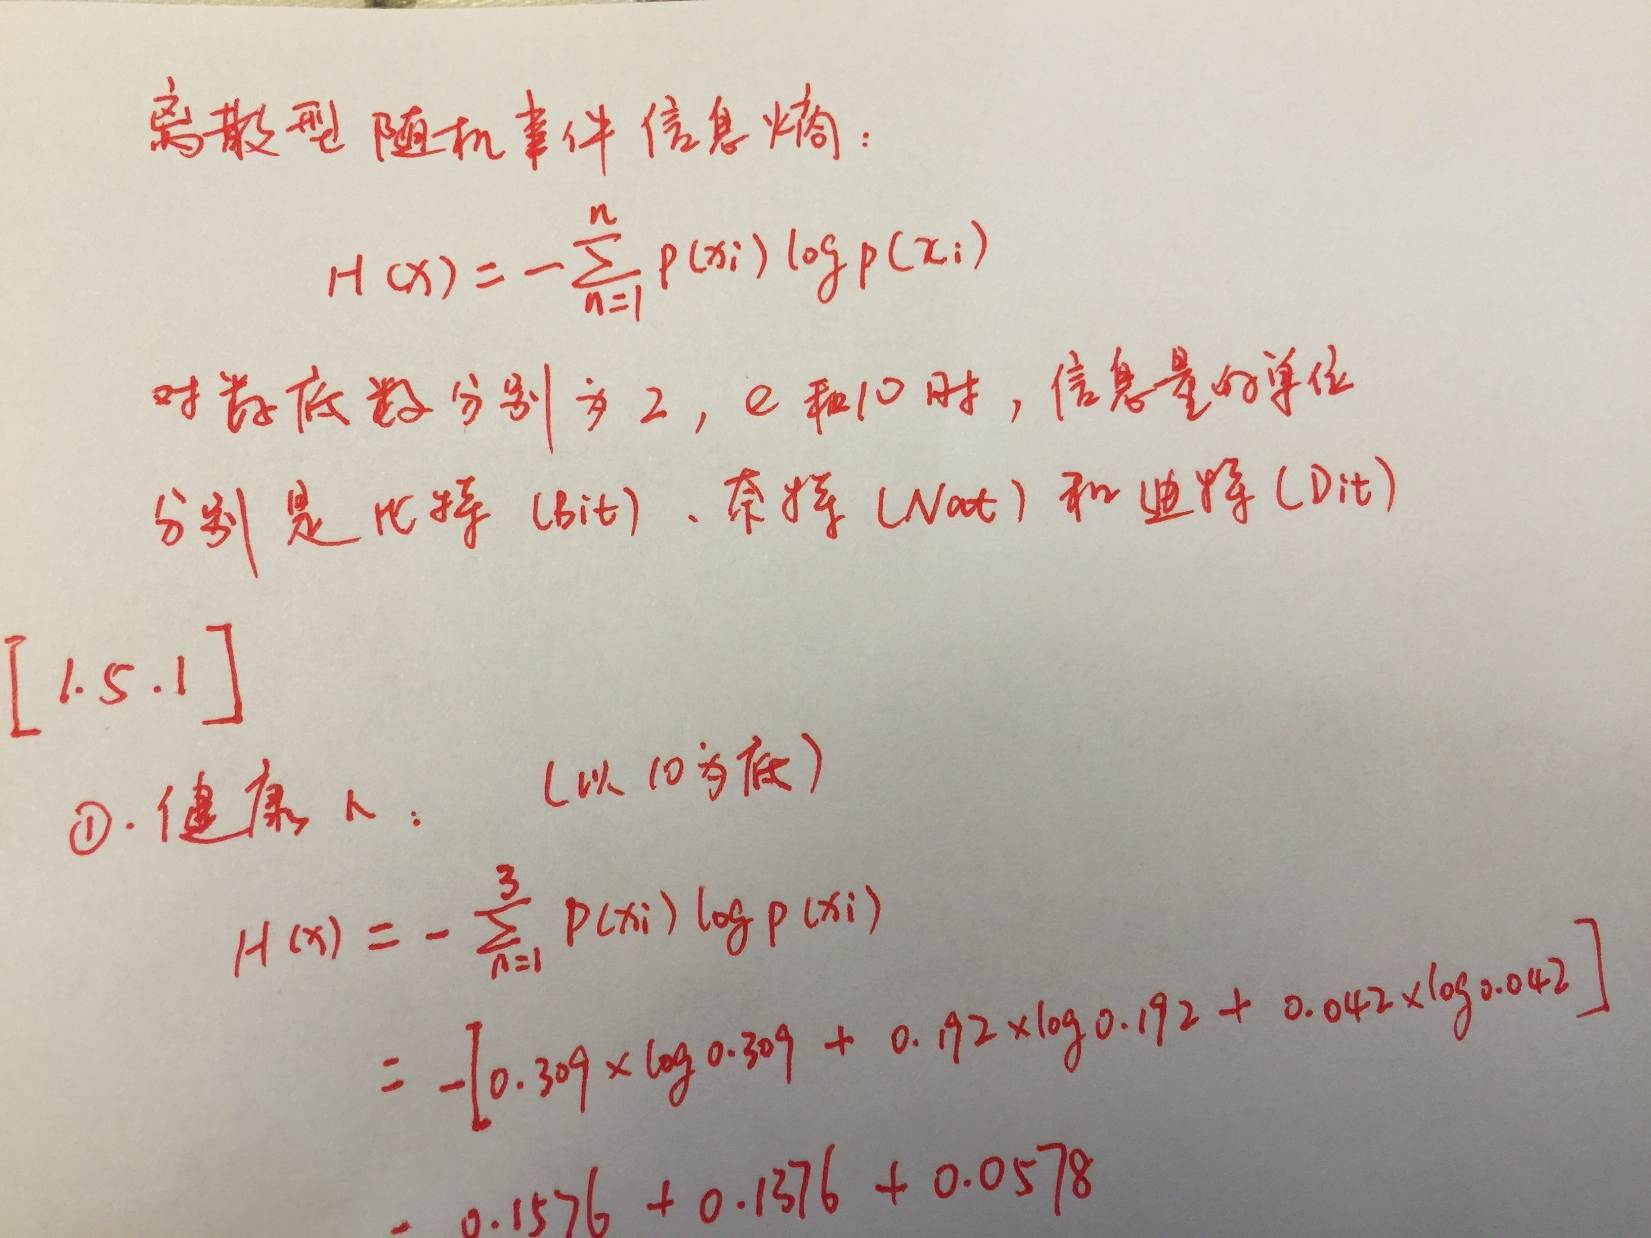 离散型随机事件信息熵：
H(X) = -∑_{n=1}^{n} P(xi) log p(xi)
对数底数分别为2，e和10时，信息量的单位
分别是比特（Bit）、奈特（Nat）和迪特（Dit）
[1.5.1]
①. 健康人：（以10为底）
H(x) = -∑_{n=1}^{3} P(xi) log p(xi)
= -[0.309×log0.309 + 0.192×log0.192 + 0.042×log0.042]
= 0.1576 + 0.1376 + 0.0578